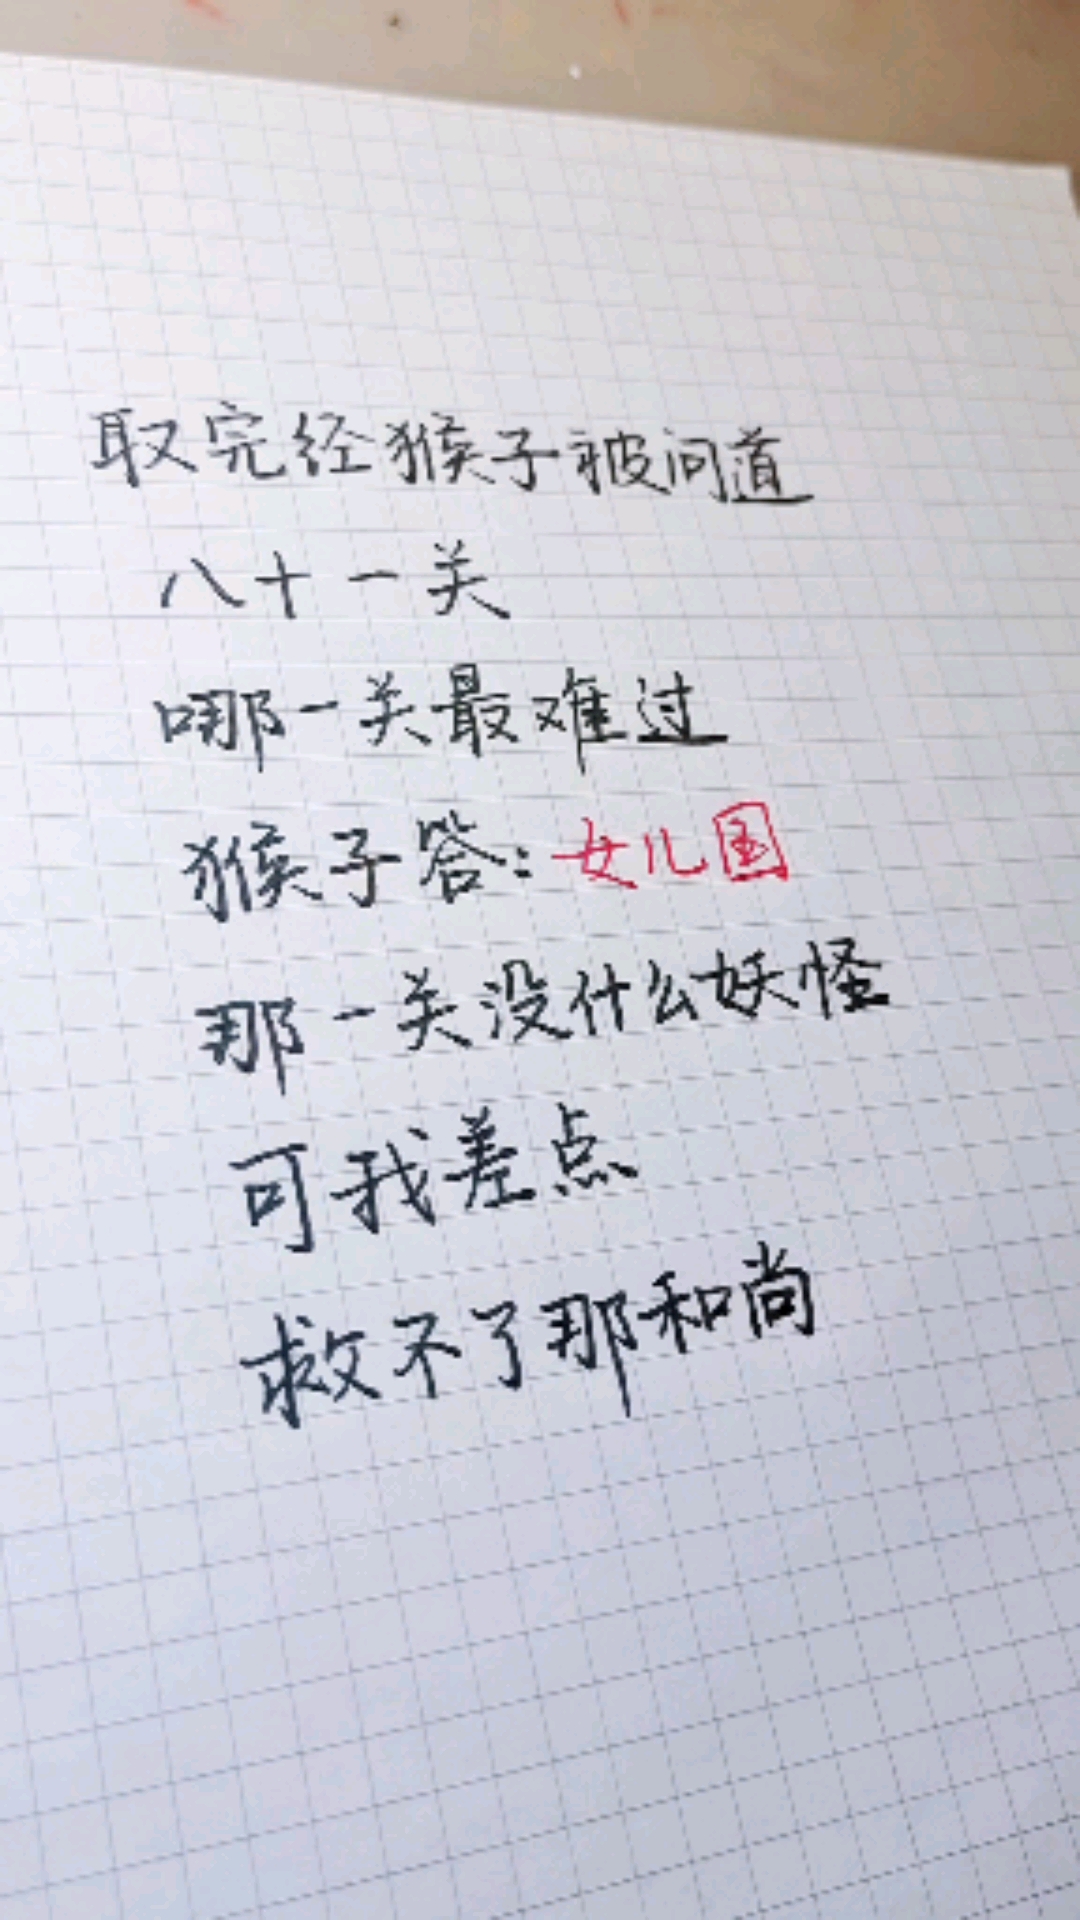 取完经猴子被问道
八十一关
哪一关最难过
猴子答：女儿国
那一关没什么妖怪
可我差点
救不了那和尚